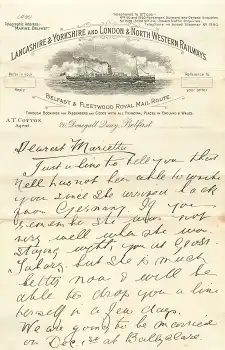 Telegraphic Address:
"MARINE, BELFAST."
LANCASHIRE & YORKSHIRE AND LONDON & NORTH WESTERN RAILWAYS.
Refer in your
Reply to
Reference to
your letter
BELFAST & FLEETWOOD ROYAL MAIL ROUTE
THROUGH BOOKINGS FOR PASSENGERS AND GOODS WITH ALL PRINCIPAL PLACES IN ENGLAND & WALES.
A.T. COTTON
Agent
Donegall Quay, Belfast
Dearest Mariette
Just a line to tell you that
Nell has not been able to write
you since she arrived back
from Germany. If you
remember she was not
very well when she was
staying with you at
but she is much
better now & will be
able to drop you a line
herself in a few days,
We are going to be married
on Dec 1st at Ballyclare.